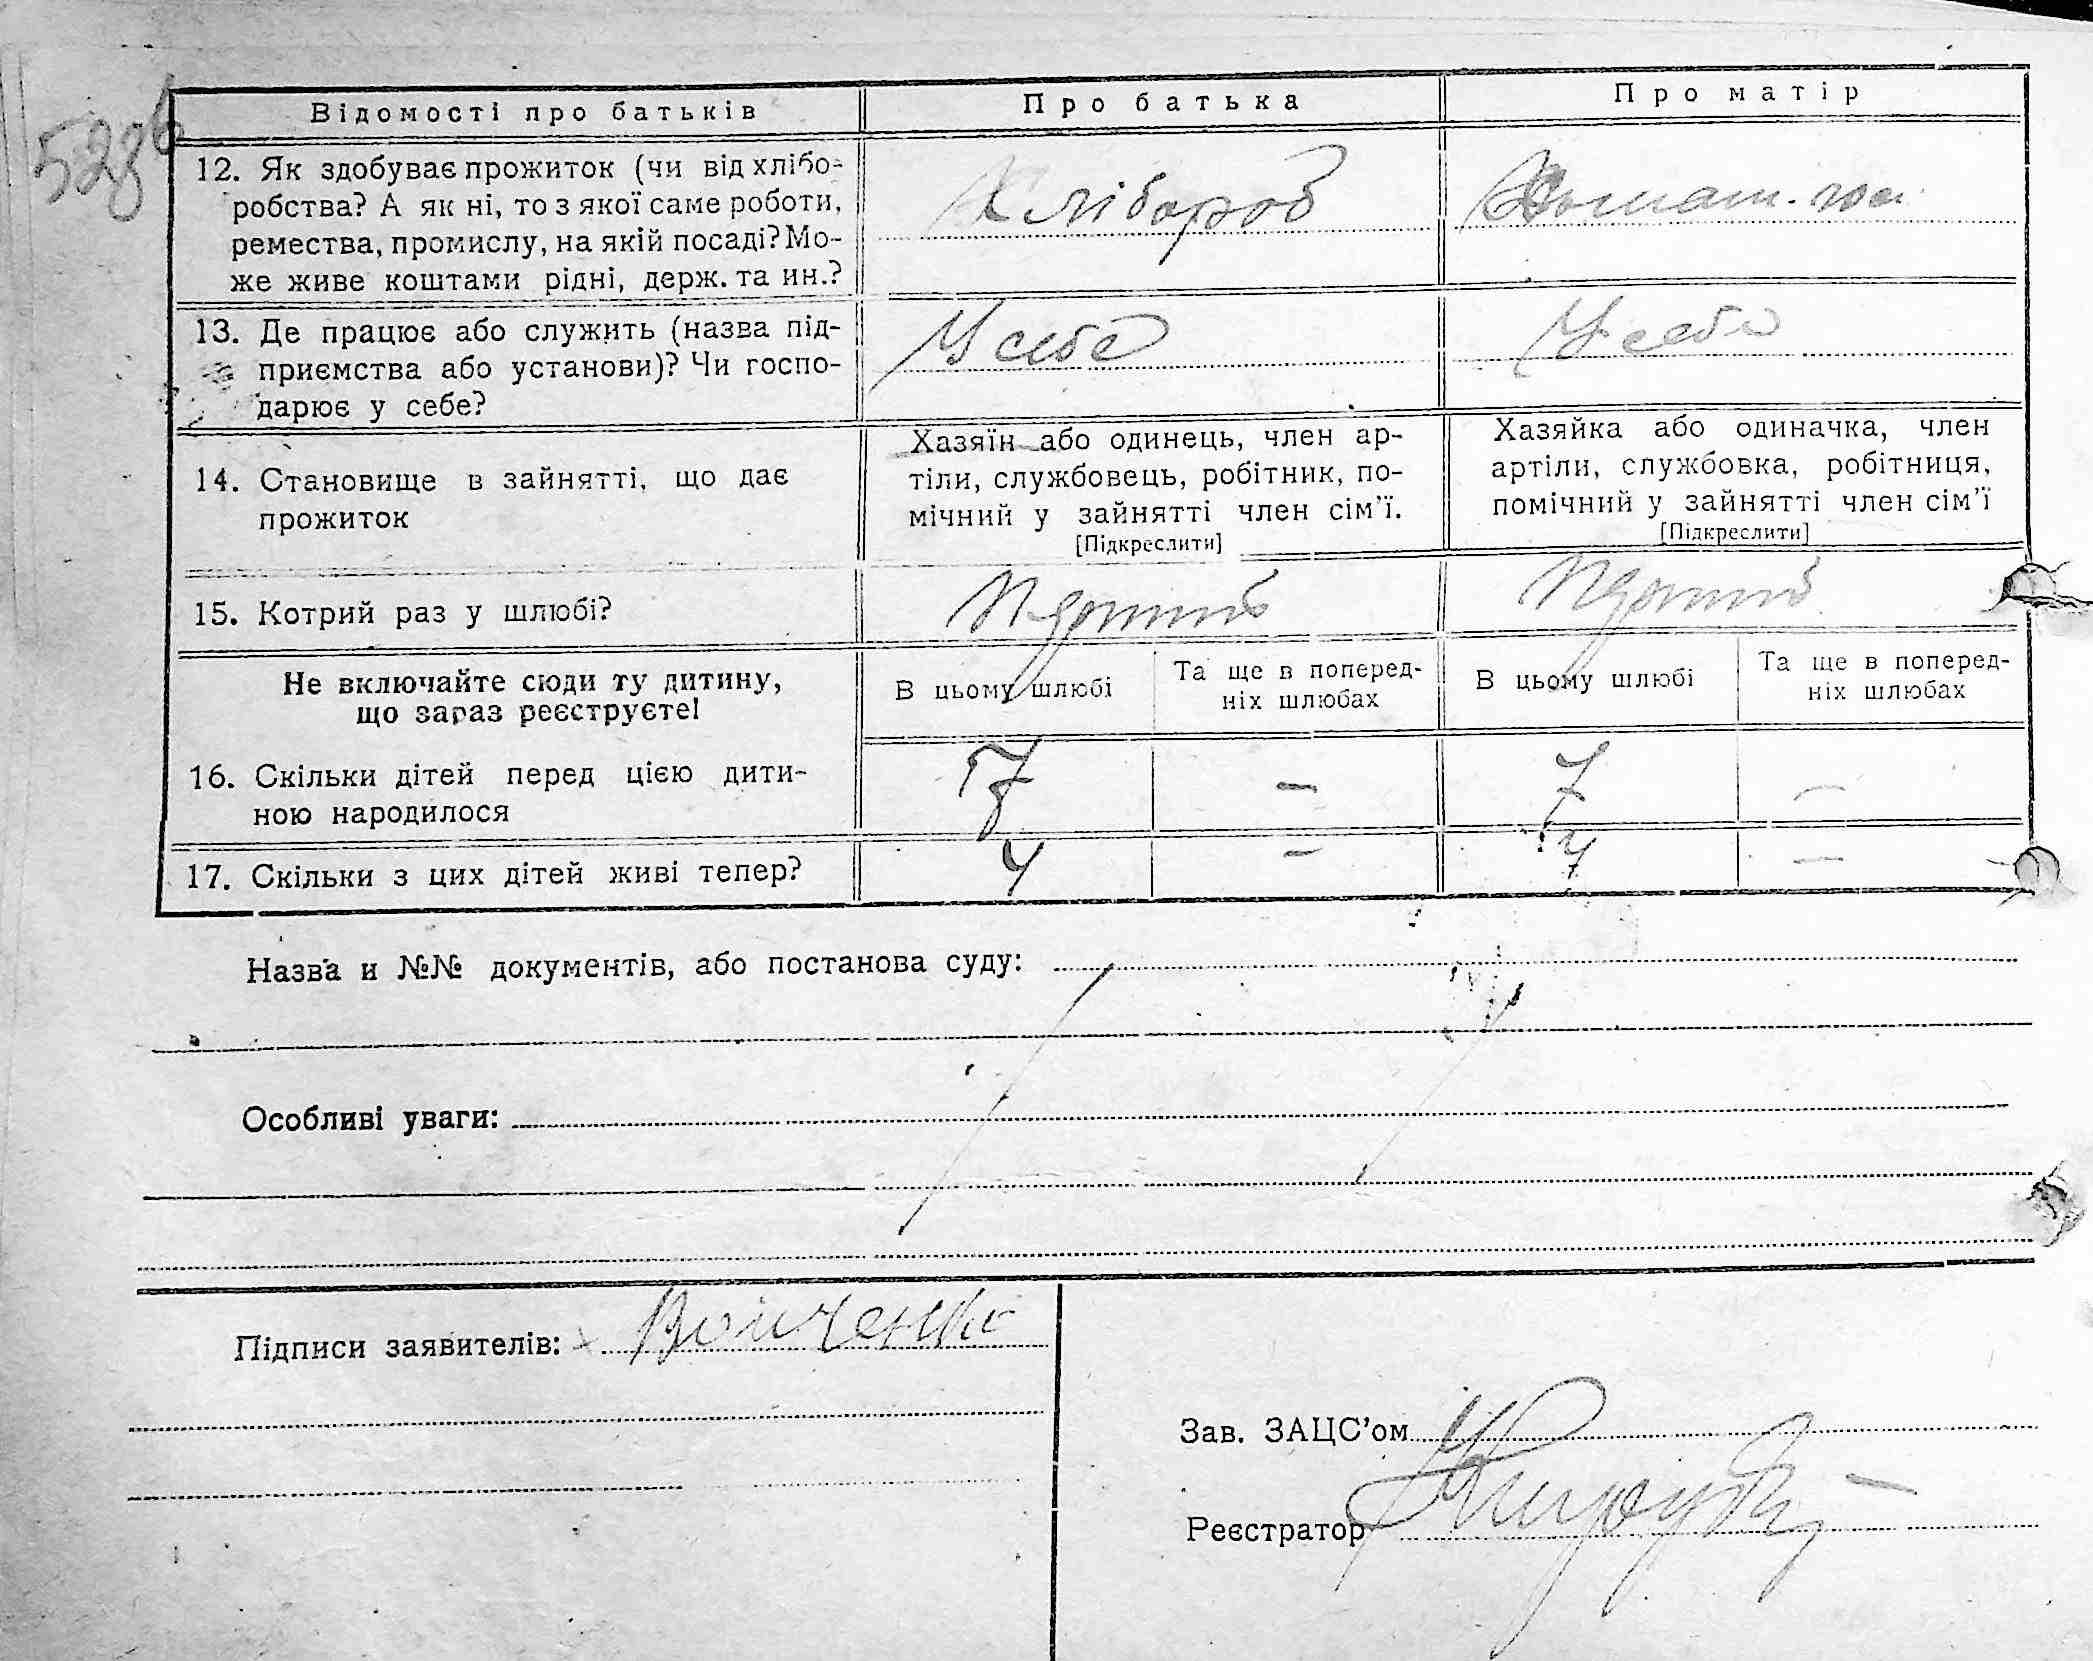 528б
Відомості про батьків
Про батька
Про матір
12. Як здобуває прожиток (чи від хлібо-
робства? А як ні, то з якої саме роботи,
ремества, промислу, на якій посаді? Мо-
же живе коштами рідні, держ. та ин.?
Хлібороб
Домаш. гос.
13. Де працює або служить (назва під-
приємства або установи)? Чи госпо-
дарює у себе?
У себе
У себе
14. Становище в зайнятті, що дає
прожиток
Хазяїн або одинець, член ар-
тіли, службовець, робітник, по-
мічний у зайнятті член сім'ї.
[Підкреслити]
Хазяйка або одиначка, член
артіли, службовка, робітниця,
помічний у зайнятті член сім'ї
[Підкреслити]
15. Котрий раз у шлюбі?
Не включайте сюди ту дитину,
що зараз реєструєте!
В цьому шлюбі
Та ще в поперед-
ніх шлюбах
В цьому шлюбі
Та ще в поперед-
ніх шлюбах
16. Скільки дітей перед цією дити-
ною народилося
7
–
7
–
17. Скільки з цих дітей живі тепер?
4
–
–
Назва и №№ документів, або постанова суду:
Особливі уваги:
Підписи заявителів:
Зав. ЗАЦС'ом
Реєстратор